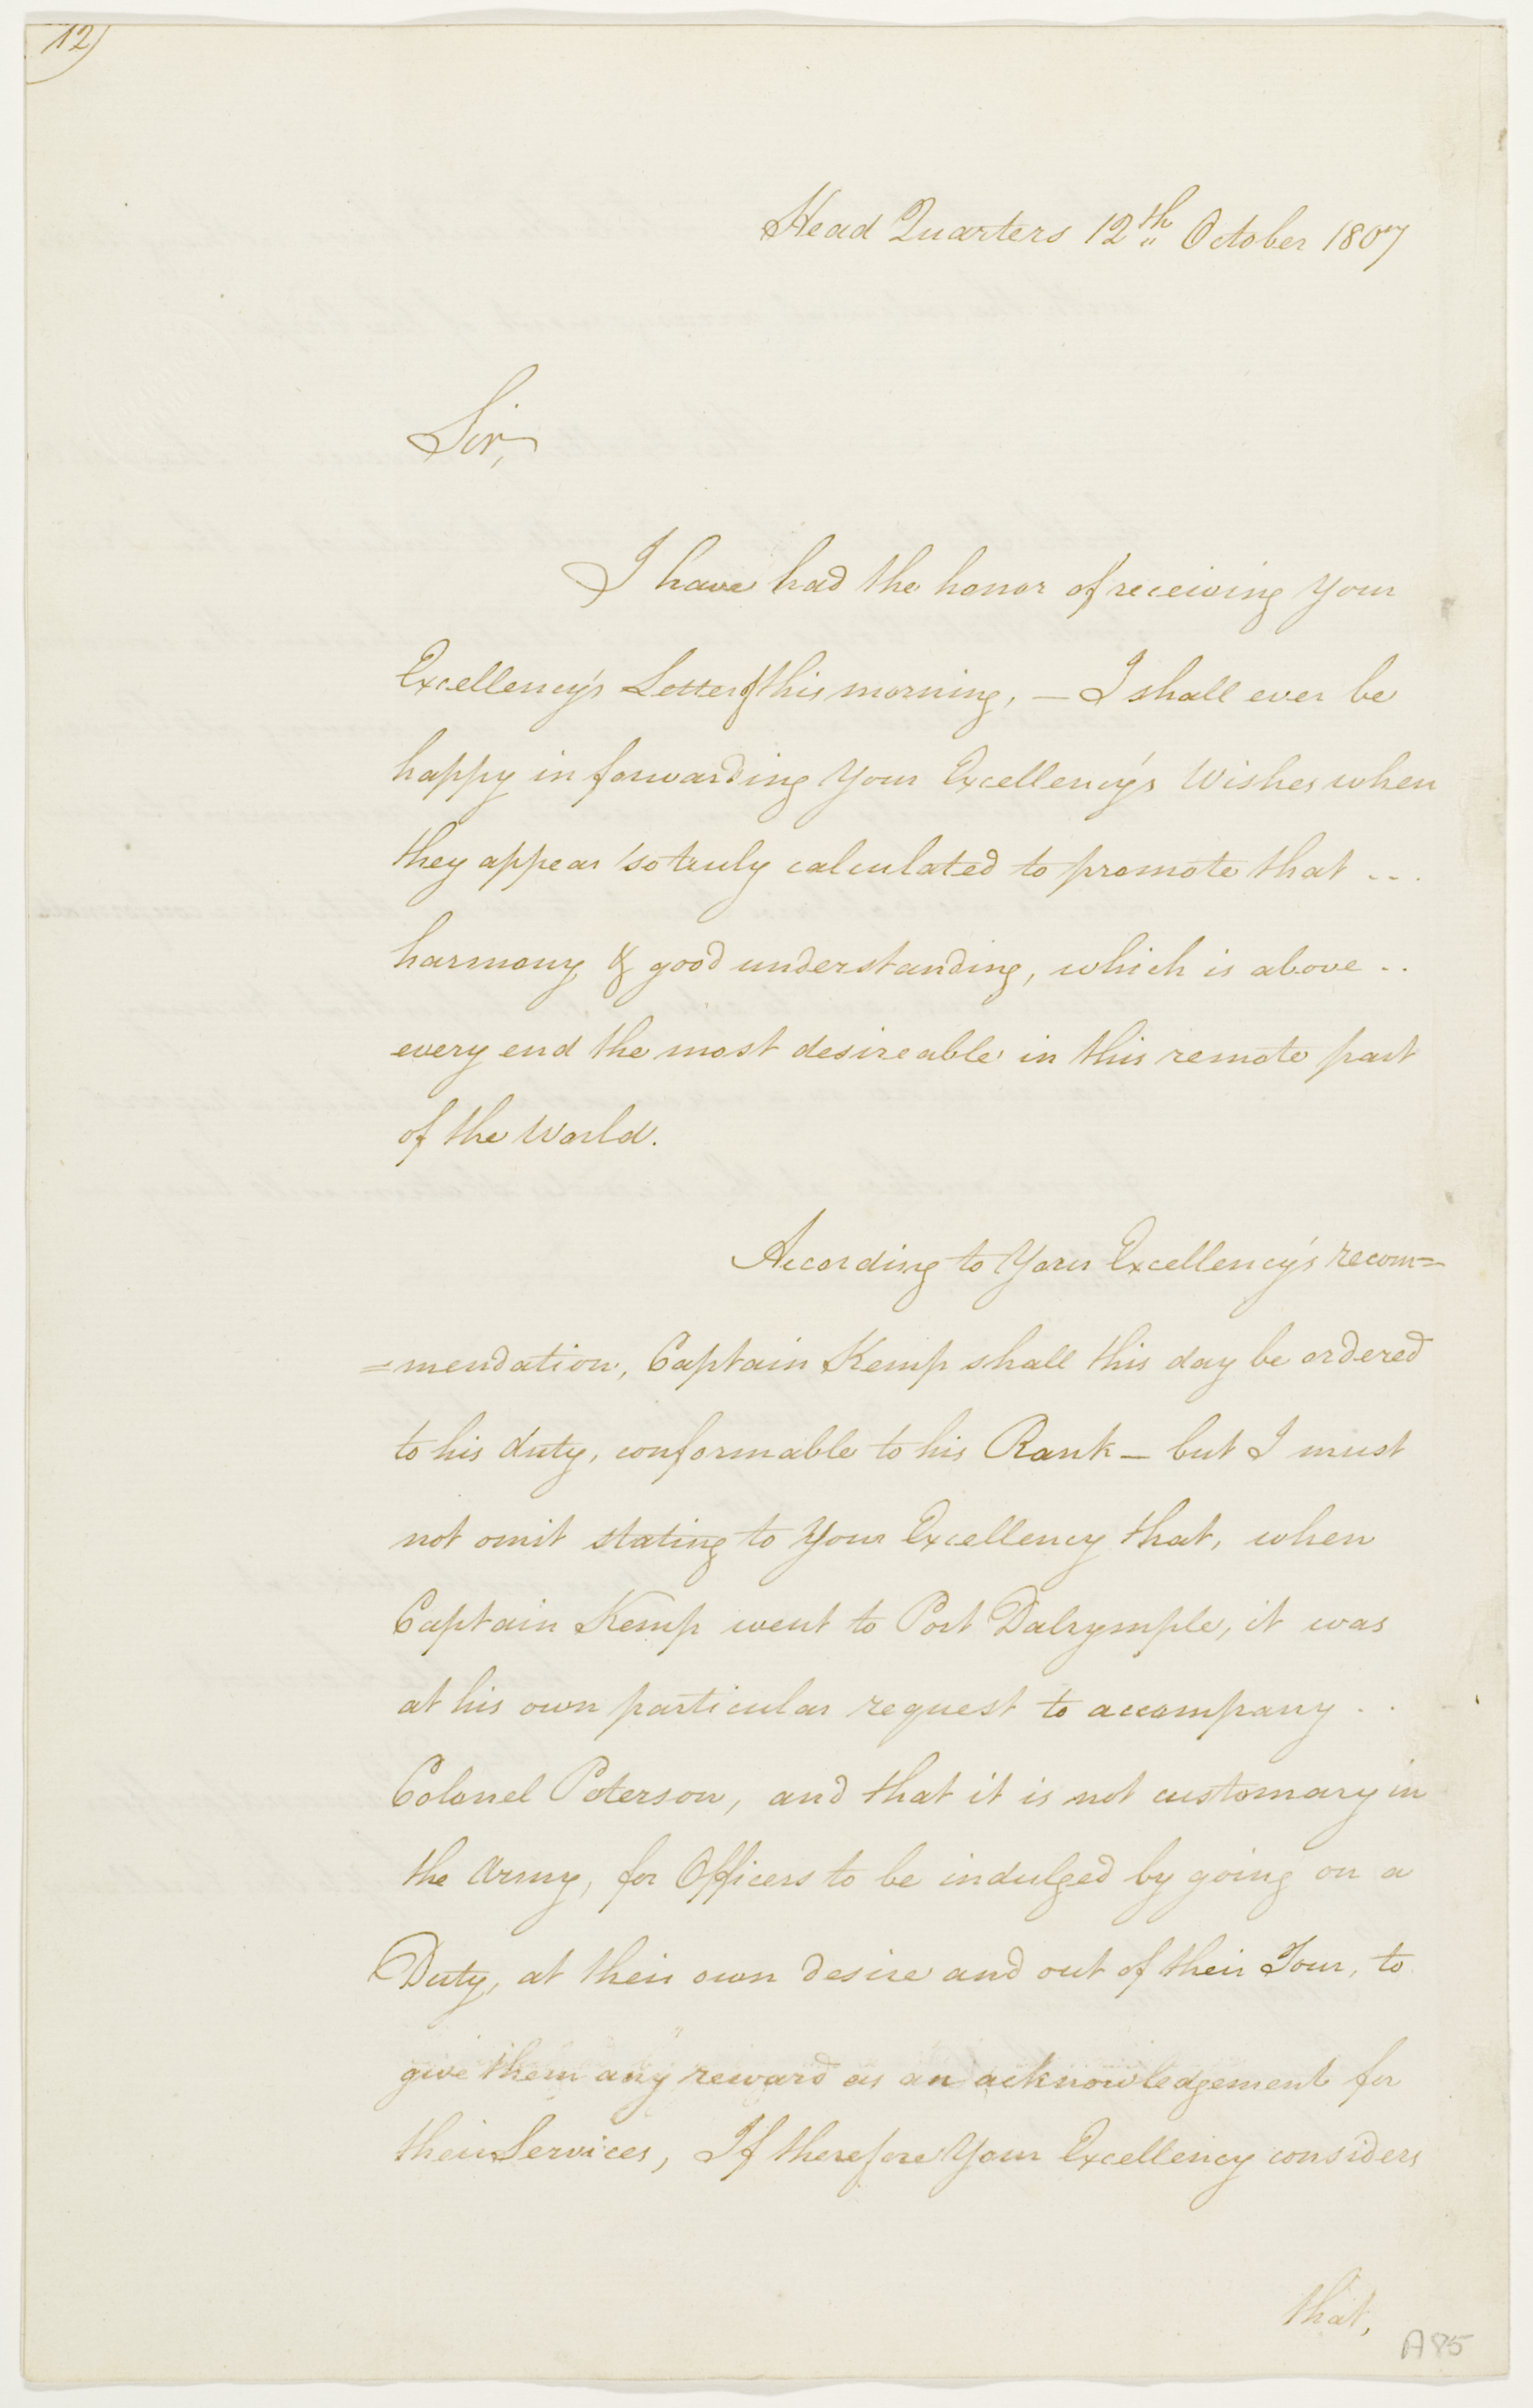 12)
Head Quarters 12th October 1807
Sir,
I have had the honor of receiving Your
Excellency's Letter of this morning, — I shall ever be
happy in forwarding Your Excellency's Wishes when
they appear so truly calculated to promote that ...
harmony & good understanding, which is above ..
every end the most desireable in this remote part
of the World.
According to Your Excellency's recom=
=mendation, Captain Kemp shall this day be ordered
to his duty, conformable to his Rank — but I must
not omit stating to Your Excellency that, when
Captain Kemp went to Port Dalrymple, it was
at his own particular request to accompany ..
Colonel Paterson, and that it is not customary in
the Army, for Officers to be indulged by going on a
Duty, at their own desire and out of their Tour, to
give them any reward as an acknowledgement for
their Services, If therefore Your Excellency considers
that,
A85